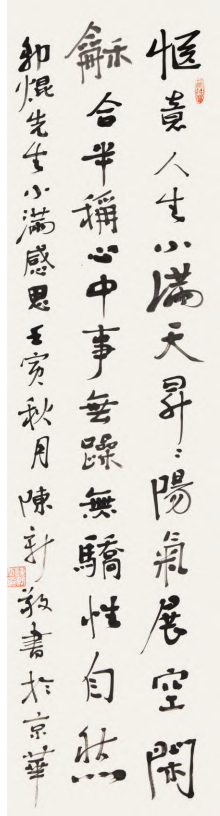 惬意人生小满天昇〻阳氣展空闲
龢合半稱心中事無躁無驕性自然
勅焜先生小滿感思壬寅秋月陳新敬書於京華